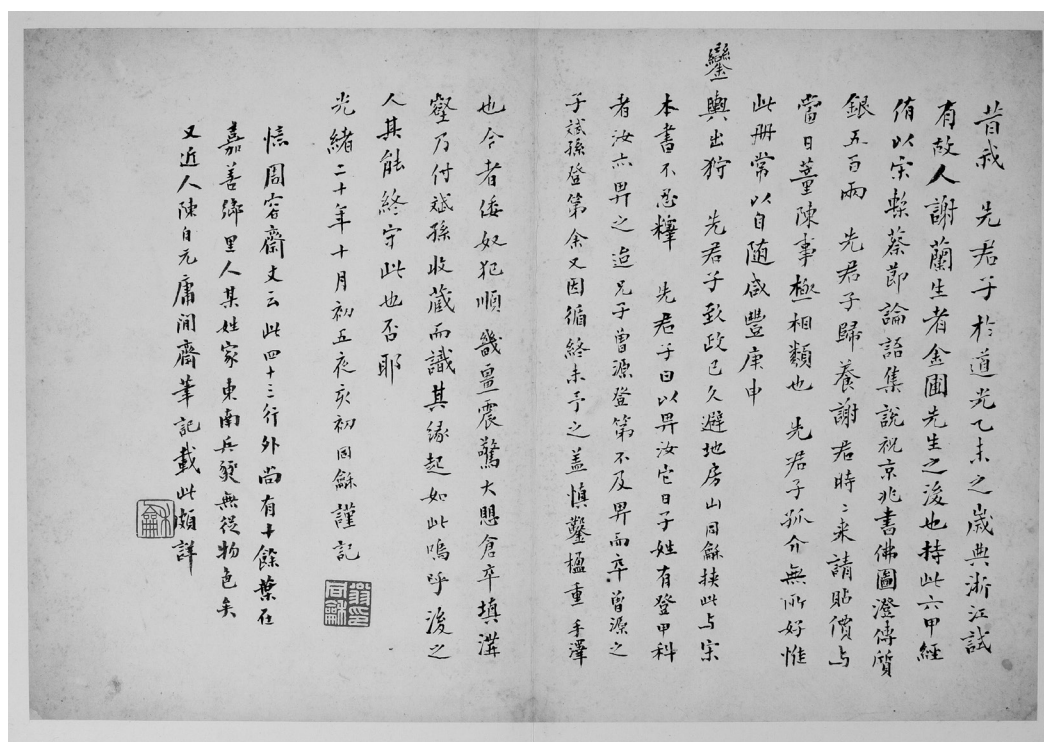 昔我　先君子於道光乙未之歲典浙江試
有故人謝蘭生者金圃先生之後也持此六甲經
侑以宋槧蔡節論語集說祝京兆書佛圖澄傳質
銀五百兩　先君子歸養謝君時〻來請貼價與
當日董陳事極相類也　先君子孤介無所好惟
此册常以自隨咸豐庚申
鑾輿出狩　先君子致政已久避地房山同龢挾此与宋
本書不忍釋　先君子曰以畀汝它日子姓有登甲科
者汝亦畀之迨兄子曾源登第不及畀而卒曾源之
子斌孫登第余又因循終未予之盖慎鑿楹重手澤
也今者倭奴犯順畿畺震驚大懼倉卒填溝
壑乃付斌孫收藏而識其緣起如此嗚呼後之
人其能終守此也否耶
光緒二十年十月初五夜亥初同龢謹記
翁印同龢
憶周容齋丈云此四十三行外尚有十餘葉在
嘉善鄉里人某姓家東南兵燹無從物色矣
又近人陳自元庸閒齋筆記載此頗詳